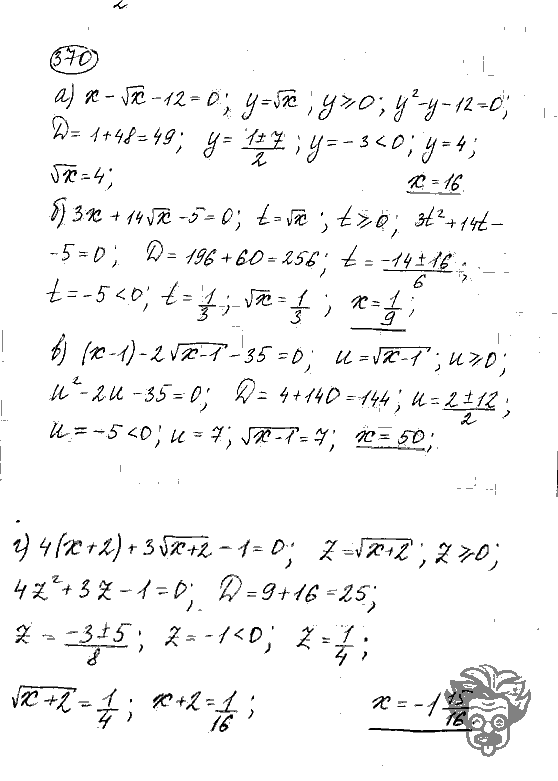 370
а) x − √x − 12 = 0; y = √x; y ⩾ 0; y² − y − 12 = 0;
D = 1 + 48 = 49; y = (1 ± 7)/2; y = −3 < 0; y = 4;
√x = 4; x = 16
б) 3x + 14√x − 5 = 0; t = √x; t ⩾ 0; 3t² + 14t −
− 5 = 0; D = 196 + 60 = 256; t = (−14 ± 16)/6;
t = −5 < 0; t = 1/3; √x = 1/3; x = 1/9;
в) (x−1) − 2√(x−1) − 35 = 0; u = √(x−1); u ⩾ 0;
u² − 2u − 35 = 0; D = 4 + 140 = 144; u = (2 ± 12)/2;
u = −5 < 0; u = 7; √(x−1) = 7; x = 50;
г) 4(x+2) + 3√(x+2) − 1 = 0; z = √(x+2); z ⩾ 0;
4z² + 3z − 1 = 0; D = 9 + 16 = 25;
z = (−3 ± 5)/8; z = −1 < 0; z = 1/4;
√(x+2) = 1/4; x + 2 = 1/16; x = −1 15/16